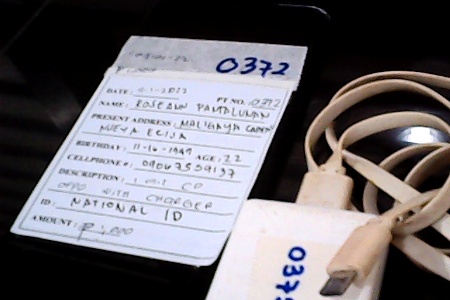 0372
DATE: 4-1-2022 PT NO. 0372
NAME: ROSEANN PANTALUNAN
PRESENT ADDRESS: MALIGAYA CABAN
NUEVA ECIJA
BIRTHDAY: 11-16-1999 AGE: 22
CELLPHONE #: 09067559137
DESCRIPTION: 1 UNIT CP
OPPO WITH CHARGER
ID: NATIONAL ID
AMOUNT:
037